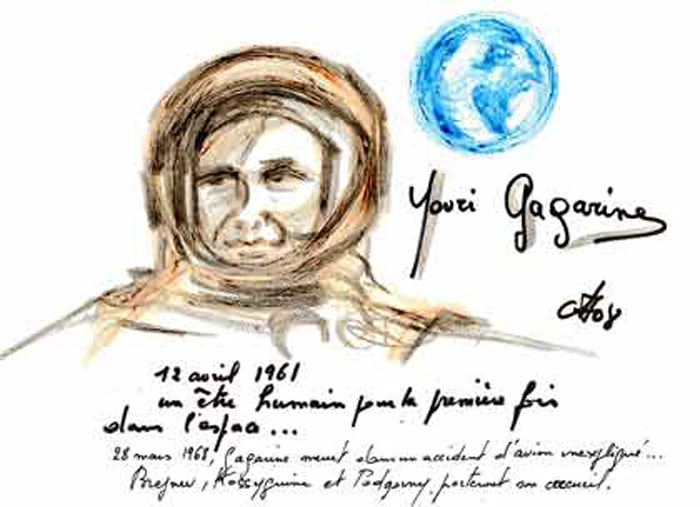 Youri Gagarine
12 avril 1961
un être humain pour la première fois
dans l'espace ...
28 mars 1968, Gagarine meurt dans un accident d'avion inexpliqué...
Brejnev, Kossyguine et Podgorny, portent son cercueil.